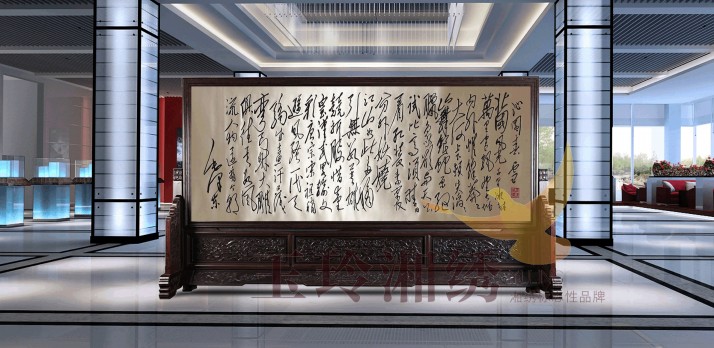 沁園春 雪
北国風光千里冰封
萬里雪飘望長城
内外惟餘莽莽
大河上下頓失滔滔
山舞銀蛇原馳
臘象欲与天公
试比高须晴日
看红装素裹
分外妖娆
江山如此多娇
引無数英雄
競折腰惜秦皇
漢武略输文
采唐宗宋祖稍
遜風骚一代天
骄成吉思汗
只識彎弓射大雕
俱往矣数風
流人物还看今朝
毛澤東
玉玲湘绣